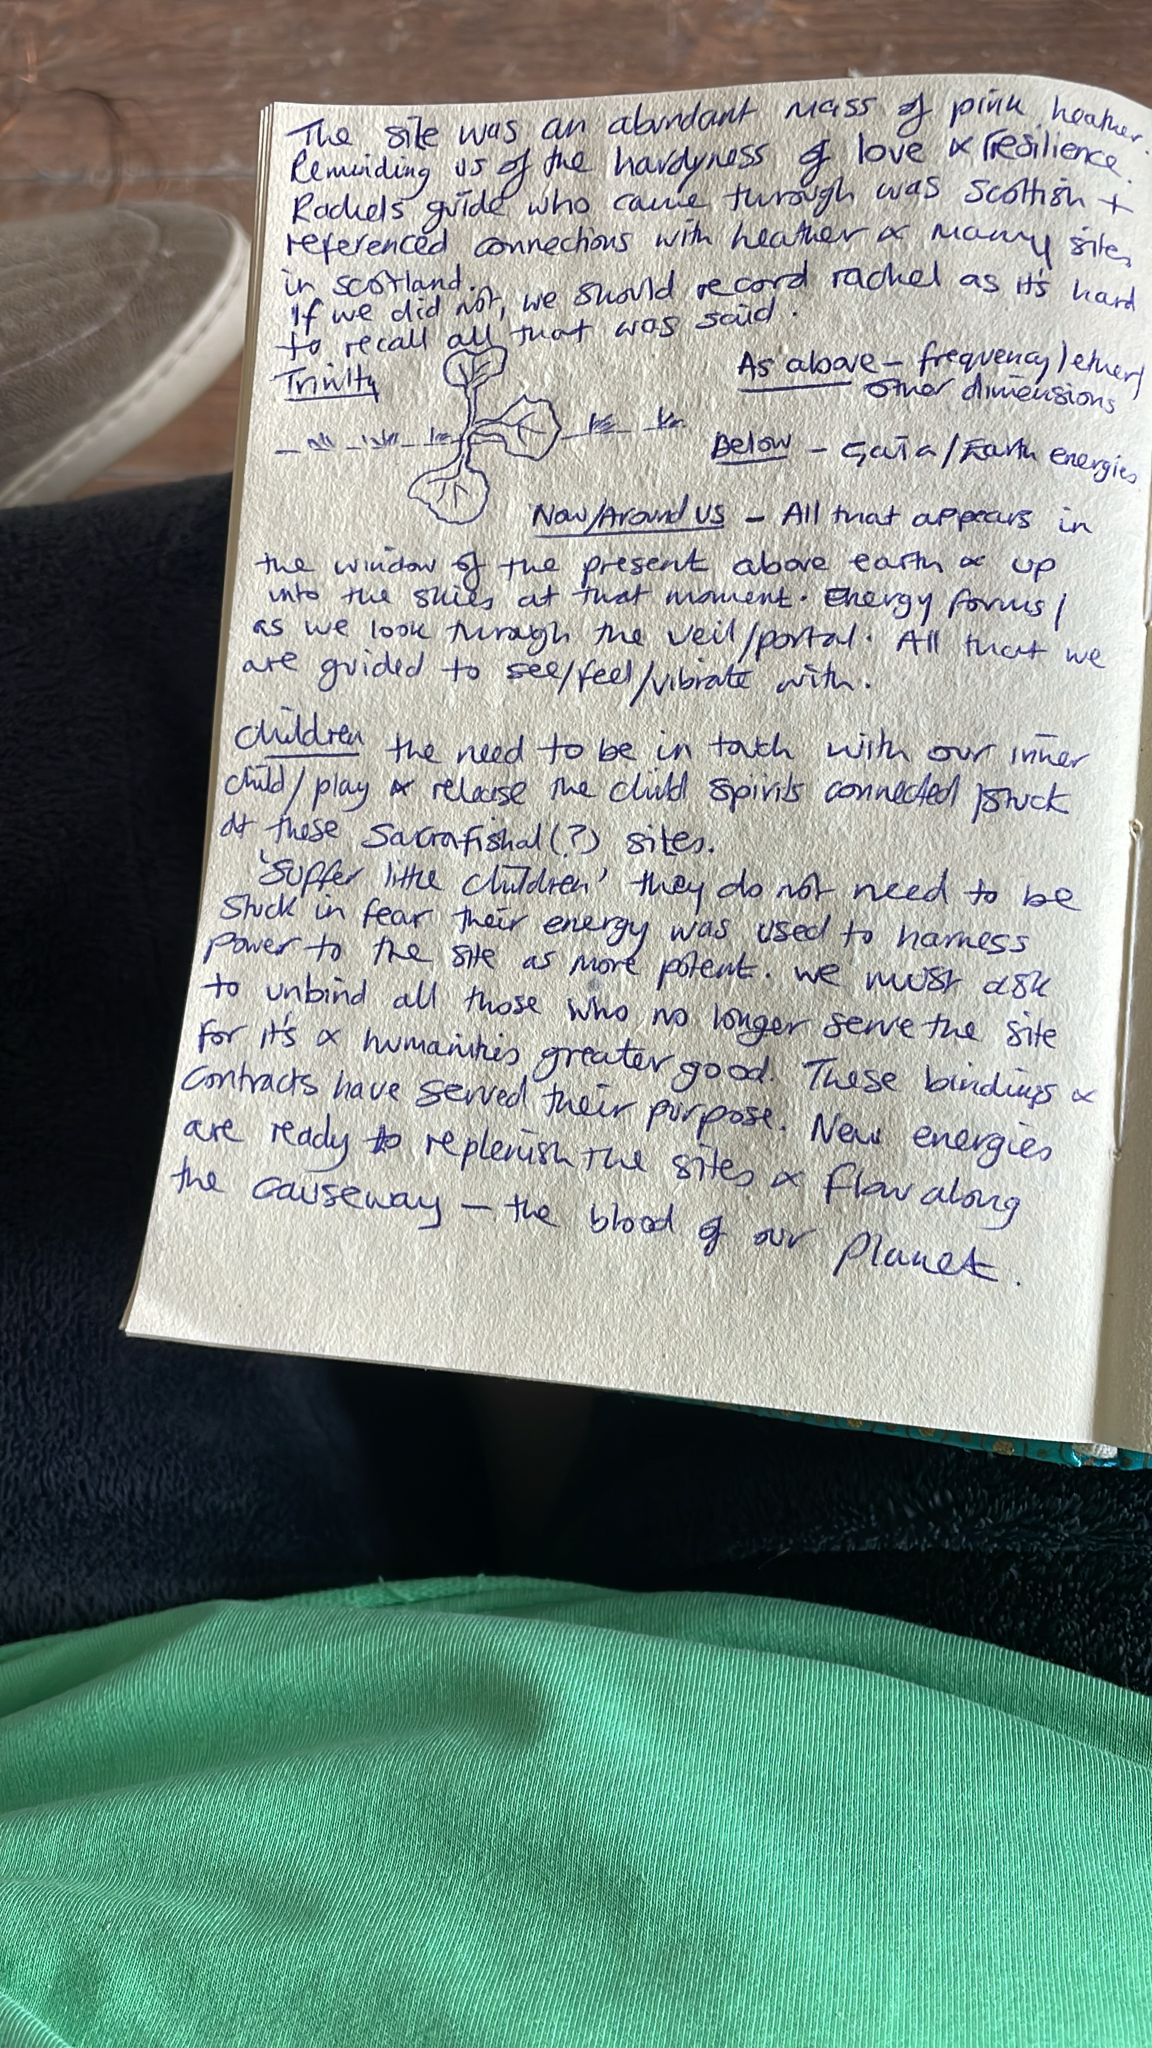 The site was an abundant mass of pink heather.
Reminding us of the hardyness of love & resilience.
Rachels guide who came through was Scottish +
referenced connections with heather & many sites
in scotland.
If we did not, we should record rachel as it's hard
to recall all that was said.
Trinity
As above – frequency/ether/
other dimensions
Below – Gaia/Earth energies
Now/Around us – All that appears in
the window of the present above earth & up
into the skies at that moment. Energy forms/
as we look through the veil/portal. All that we
are guided to see/feel/vibrate with.
Children the need to be in touch with our inner
child/play & release the child spirits connected/stuck
at these Sacrafishal(?) sites.
'Suffer little children' they do not need to be
stuck in fear their energy was used to harness
power to the site as more potent. we must ask
to unbind all those who no longer serve the site
for it's & humanities greater good. These bindings &
contracts have served their purpose. New energies
are ready to replenish the sites & flow along
the causeway – the blood of our planet.